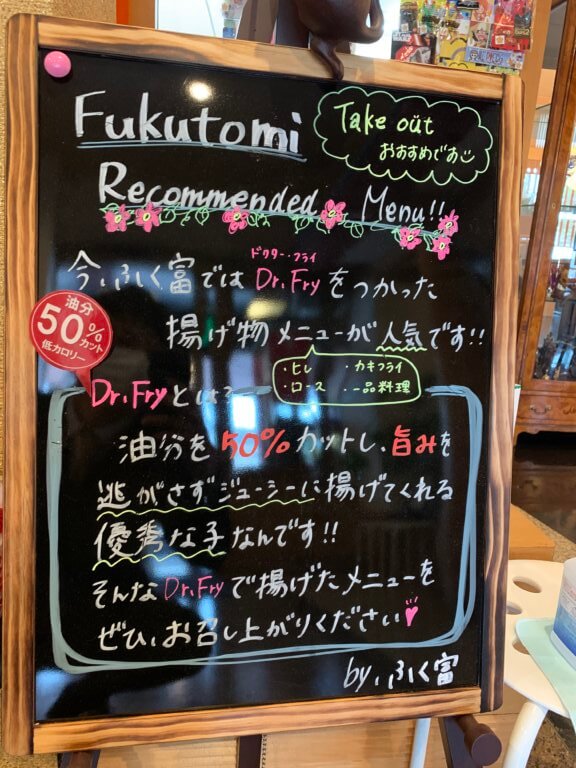 Fukutomi
Take out
おすすめです
Recommended Menu!!
ドクター・フライ
今、ふく富では Dr.Fryをつかった
揚げ物メニューが人気です!!
・ヒレ ・カキフライ
・ロース ・一品料理
油分
50%カット
低カロリー
Dr.Fryとは?
油分を50%カットし、旨みを
逃がさずジューシーに揚げてくれる
優秀な子なんです!!
そんなDr.Fryで揚げたメニューを
ぜひ、お召し上がりください
by、ふく富